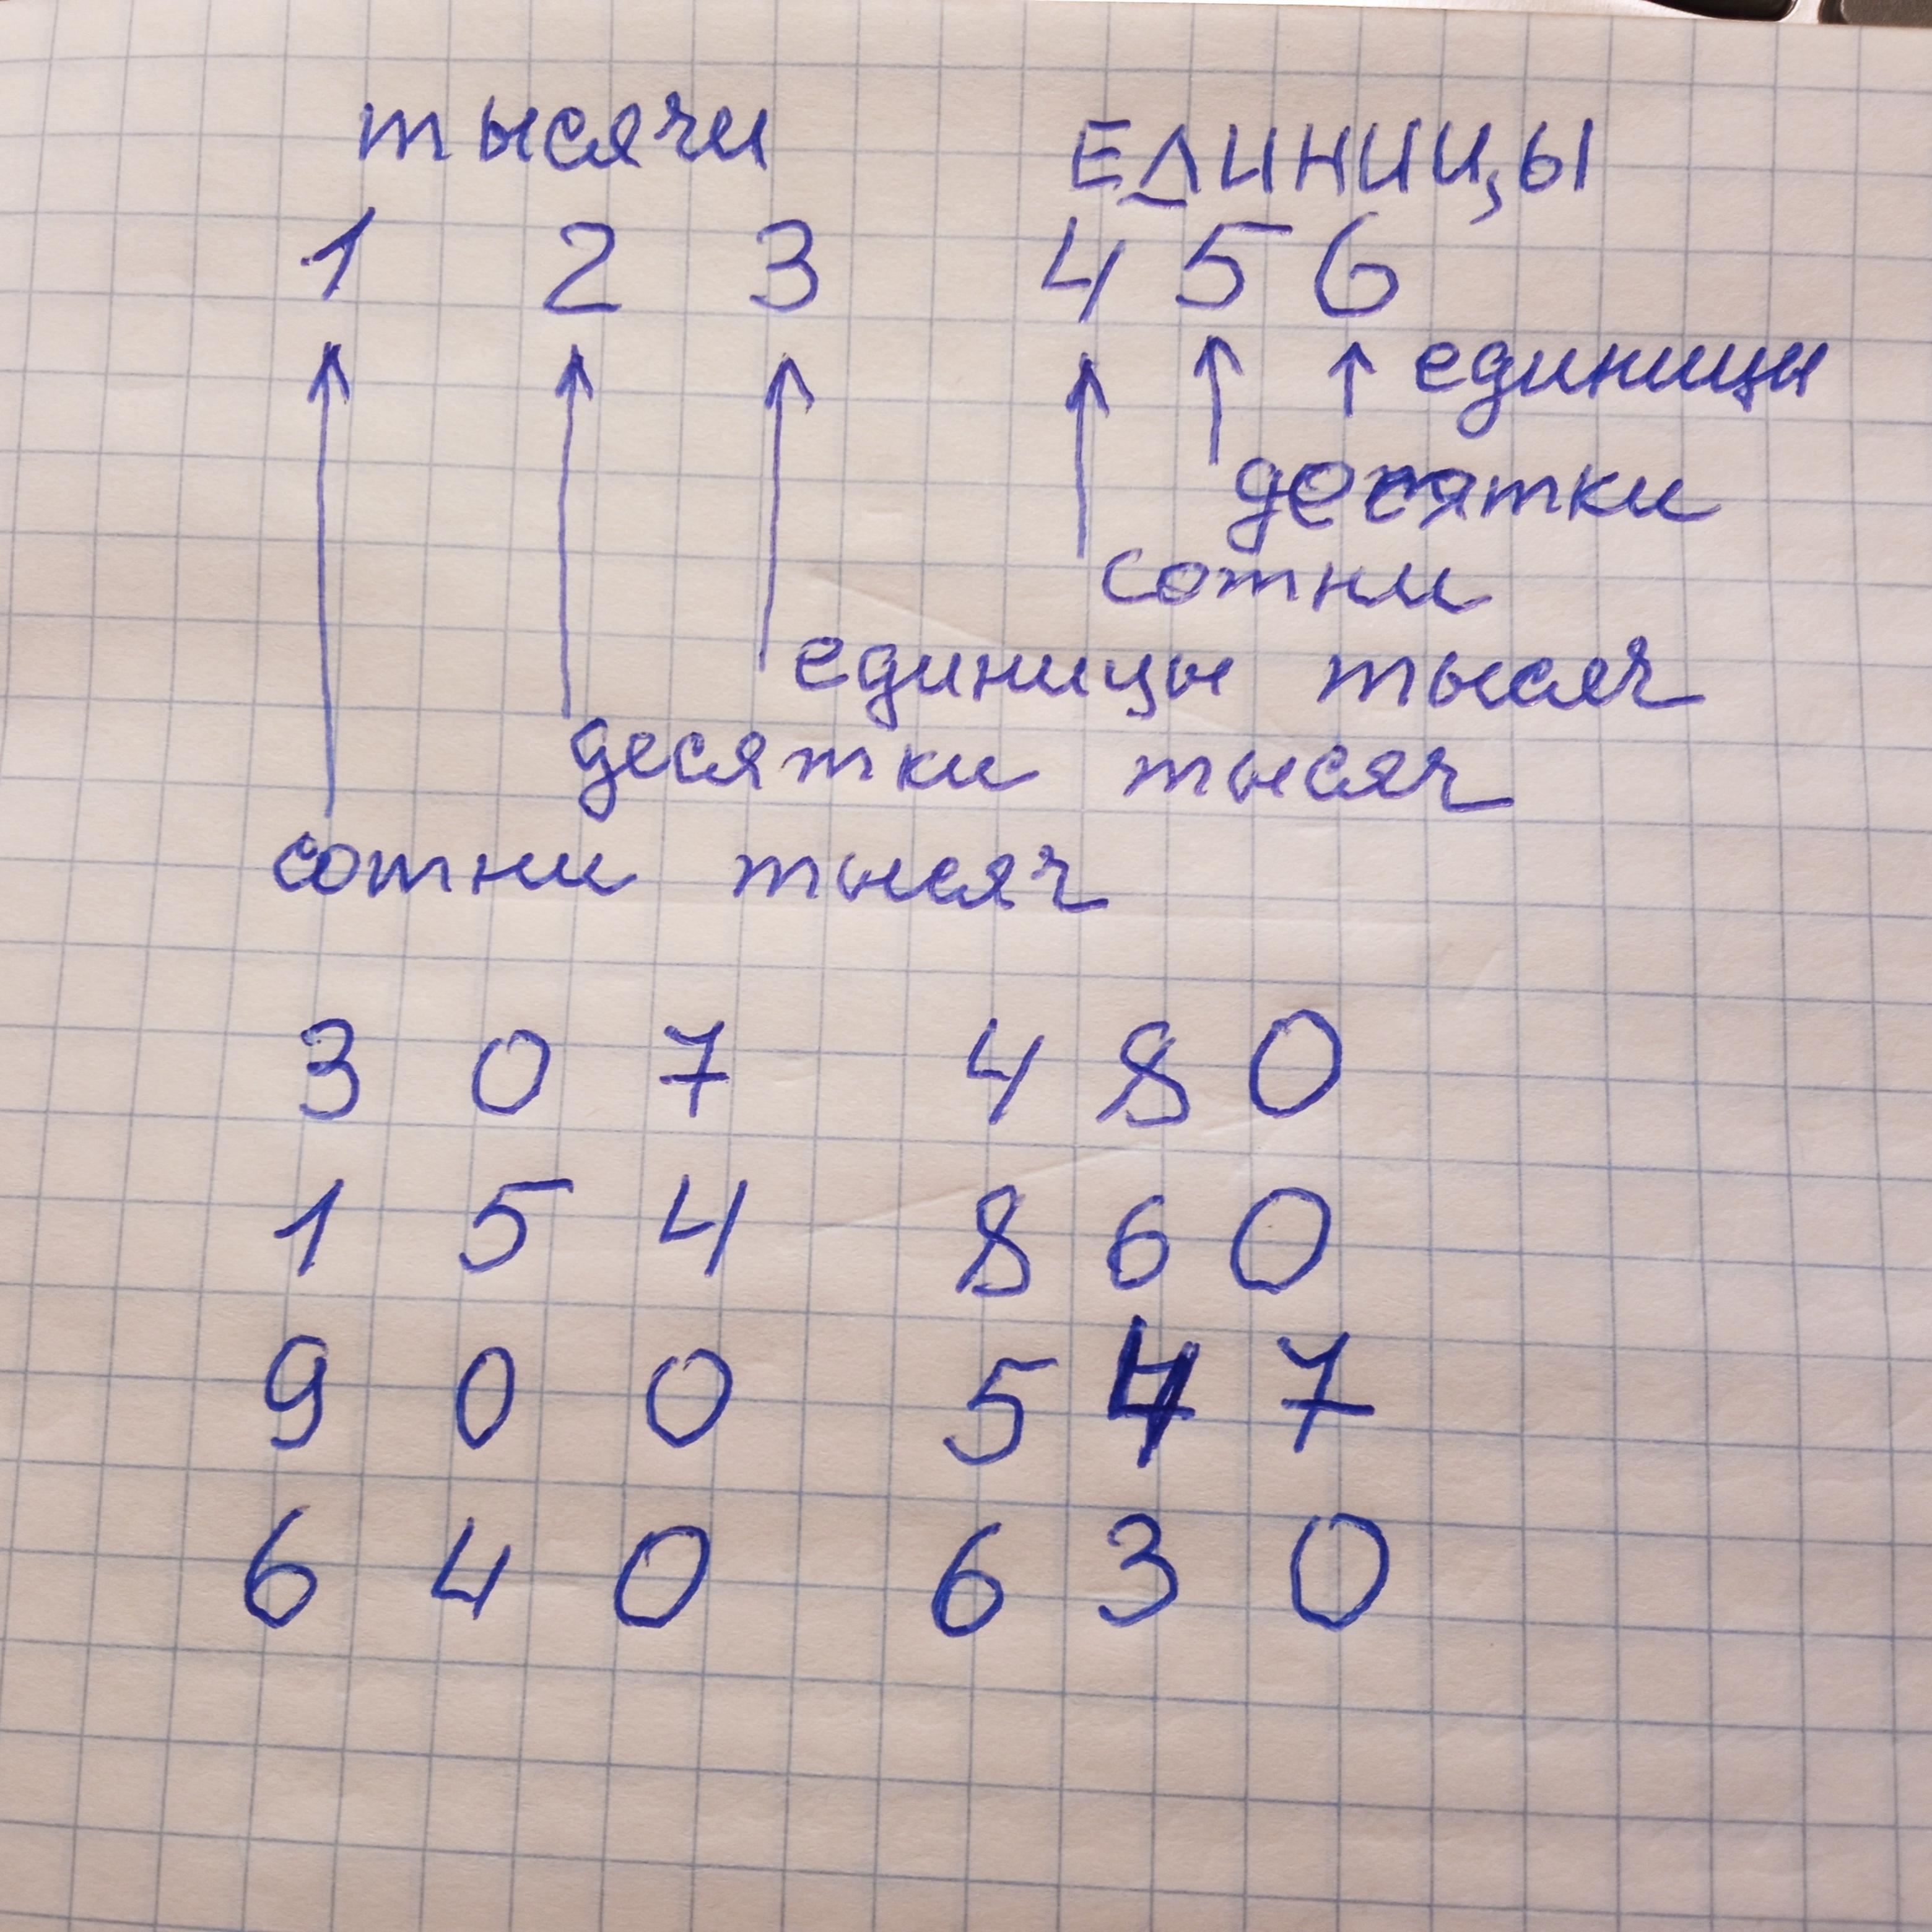 тысячи ЕДИНИЦЫ
1 2 3 4 5 6
единицы
десятки
сотни
единицы тысяч
десятки тысяч
сотни тысяч
3 0 7 4 8 0
1 5 4 8 6 0
9 0 0 5 4 7
6 4 0 6 3 0